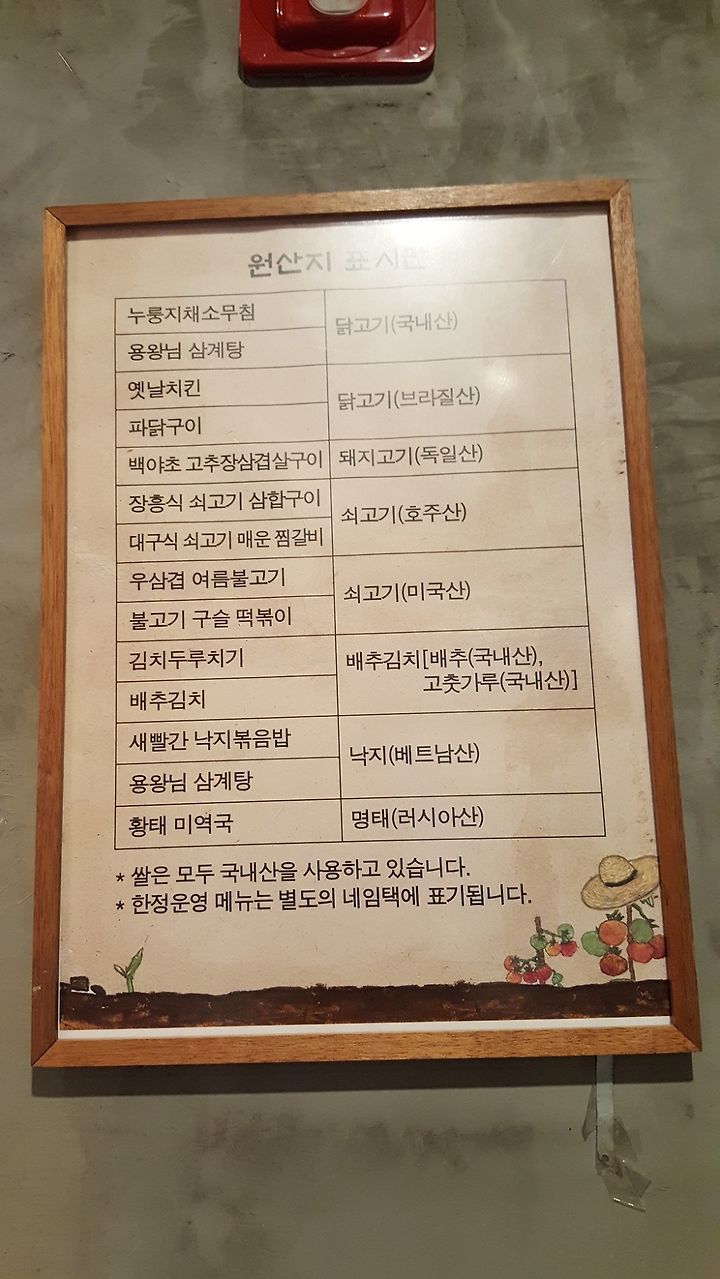 원산지 표시판
누룽지채소무침
닭고기(국내산)
용왕님 삼계탕
옛날치킨
닭고기(브라질산)
파닭구이
백야초 고추장삼겹살구이 돼지고기(독일산)
장흥식 쇠고기 삼합구이
쇠고기(호주산)
대구식 쇠고기 매운 찜갈비
우삼겹 여름불고기
쇠고기(미국산)
불고기 구슬 떡볶이
김치두루치기
배추김치[배추(국내산),
고춧가루(국내산)]
배추김치
새빨간 낙지볶음밥
낙지(베트남산)
용왕님 삼계탕
황태 미역국 명태(러시아산)
* 쌀은 모두 국내산을 사용하고 있습니다.
* 한정운영 메뉴는 별도의 네임택에 표기됩니다.